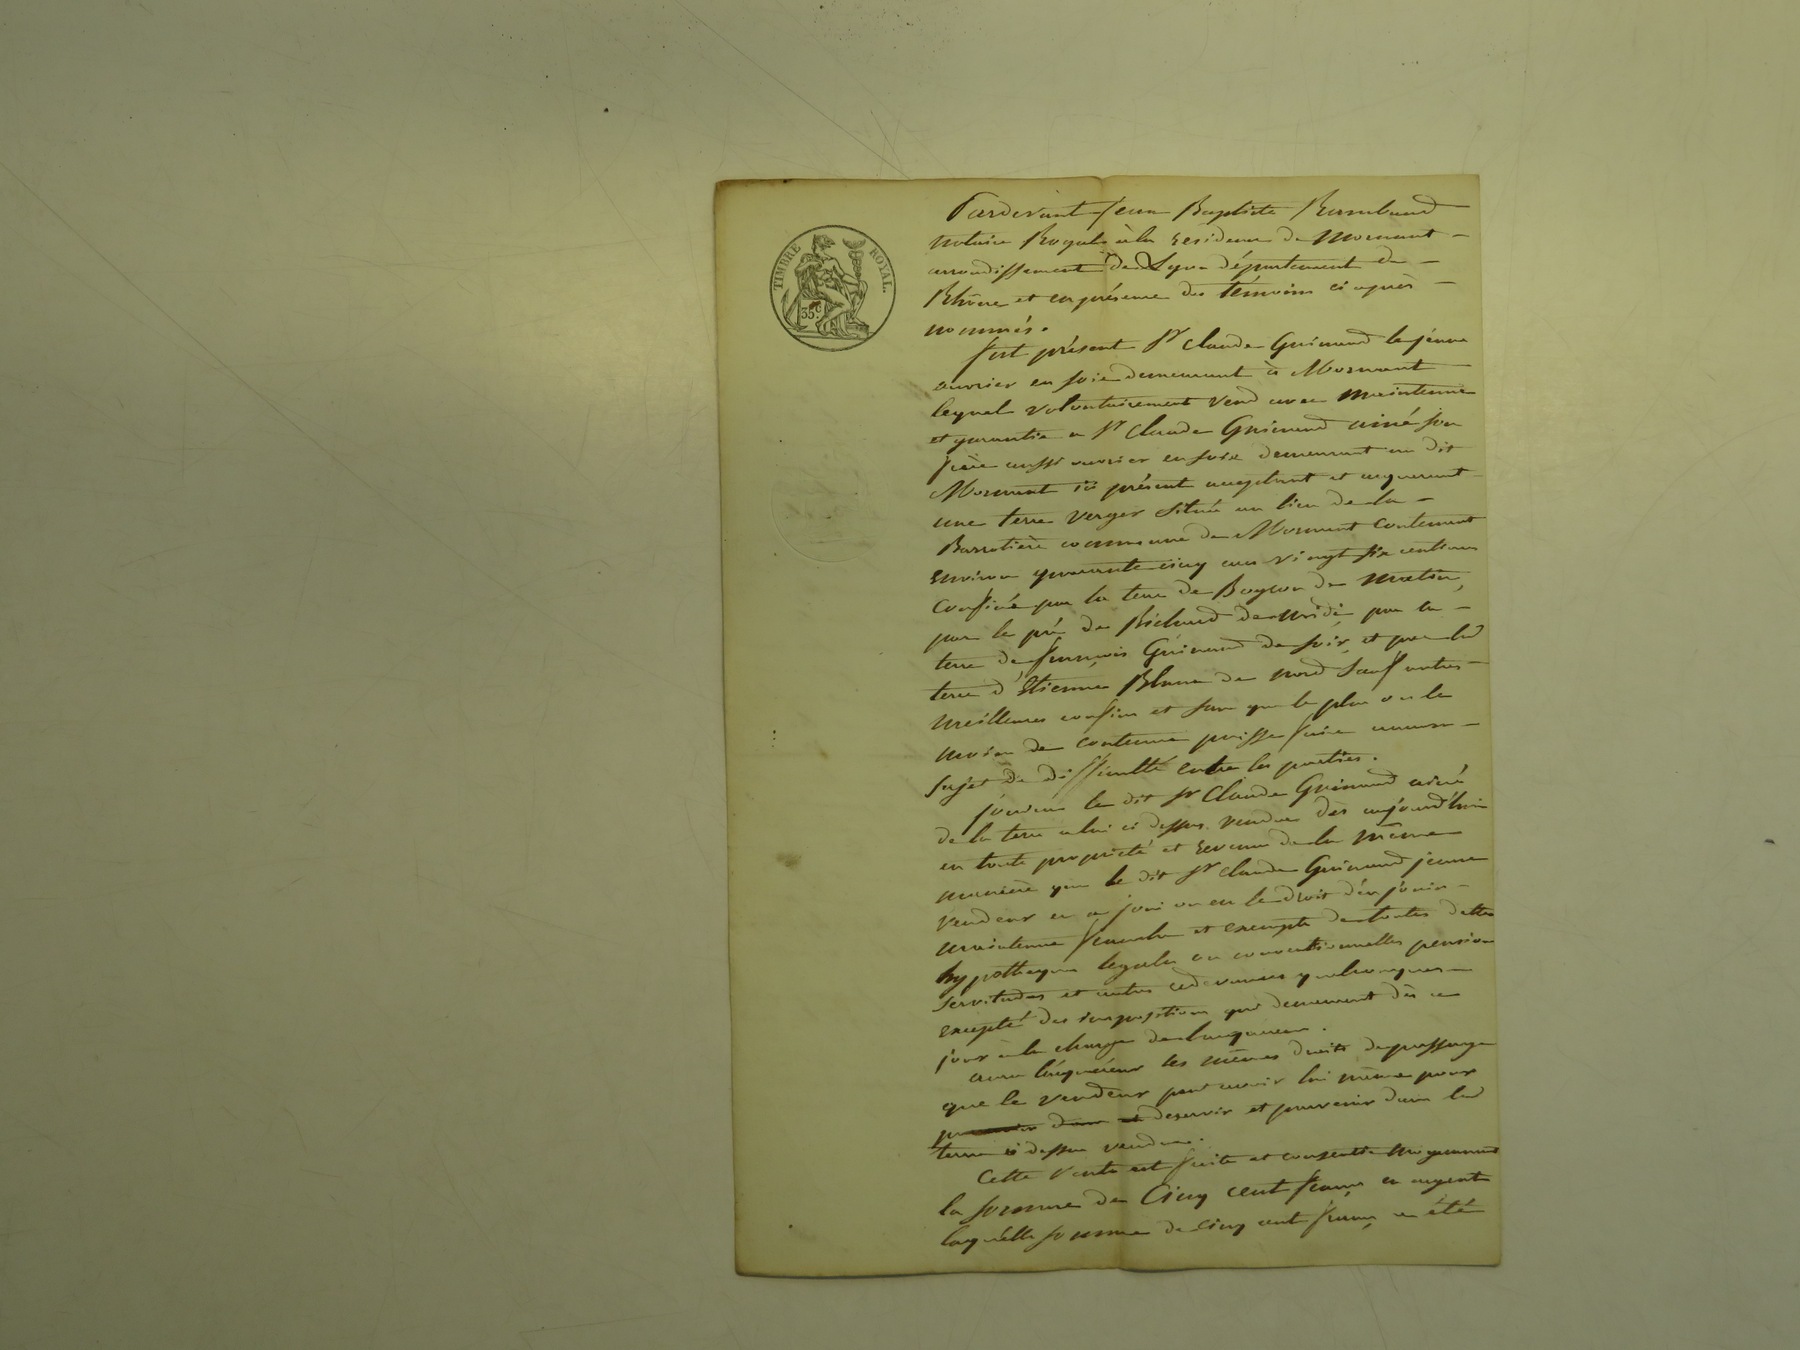 TIMBRE ROYAL.
35c.
Pardevant Jean Baptiste Rambaud
notaire Royal à la résidence de Mornant
arrondissement de Lyon département du
Rhône et en présence des témoins ci après
nommés.
fut présent Sr Claude Guinand le jeune
ouvrier en soie demeurant à Mornant
lequel volontairement vend avec maintenue
et garantie a Sr Claude Guinand ainé son
frère aussi ouvrier en soie demeurant au dit
Mornant ici présent acceptant et acquerant
une terre verger située au lieu de la
commune de Mornant contenant
environ quarante cinq ares vingt six centiares
confiné par la terre de du matin,
par le pré de Richard du midi par la
terre de françois Guinand du soir, et par la
terre d'Etienne Blanc du nord sauf autres
meilleures confins et sans que le plus ou le
moins de contenue puisse faire aucun
sujet de difficulté entre les parties.
jouira le dit Sr Claude Guinand ainé
de la terre a lui ci dessus vendue dès aujourd'hui
en toute propriété et revenu de la même
manière que le dit Sr Claude Guinand jeune
vendeur en a joui ou eu le droit d'en jouir
maintenue franche et exempte de toutes dettes
hypothèques legales ou conventionnelles pension
servitudes et autres redevances quelconques
excepté des impositions qui demeurent dès ce
jour à la charge de l'acquereur.
aura l'acquéreur les mêmes droits de passage
que le vendeur peut avoir lui même pour
deservir et parvenir dans la
terre ci dessus vendue.
Cette vente est faite et consentie moyennant
la somme de Cinq cent francs en argent
laquelle somme de cinq cent francs a été